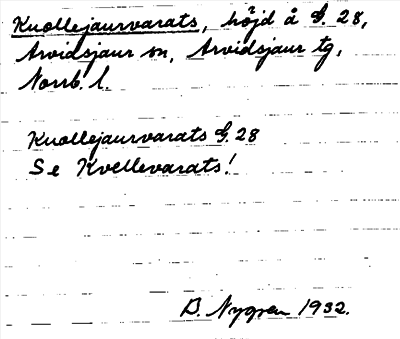 Kuollejaurvarats, höjd å G. 28,
Arvidsjaur sn, Arvidsjaur tg,
Norrb. l.
Kuollejaurvarats G. 28
Se Kvellevarats!
B. Nygren 1932.